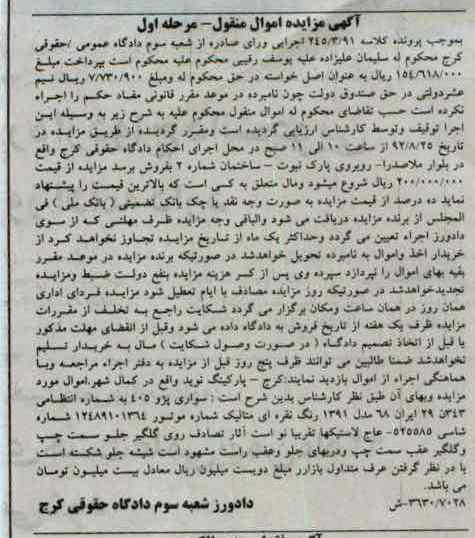 آگهی مزایده اموال منقول- مرحله اول
بموجب پرونده کلاسه ۲۴۵/۳/۹۱ اجرایی ورای صادره از شعبه سوم دادگاه عمومی /حقوقی
کرج محکوم له سلیمان علیزاده علیه یوسف رقیبی محکوم علیه محکوم است بپرداخت مبلغ
۱۵۴/۶۱۸/۰۰۰ ریال به عنوان اصل خواسته در حق محکوم له ومبلغ ۷/۷۳۰/۹۰۰ ریال نیم
عشردولتی در حق صندوق دولت چون نامبرده در موعد مقرر قانونی مفاد حکم را اجراء
نکرده است حسب تقاضای محکوم له اموال منقول محکوم علیه به شرح زیر به وسیله این
اجرا توقیف وتوسط کارشناس ارزیابی گردیده است ومقرر گردیده از طریق مزایده در
تاریخ ۹۲/۸/۲۵ از ساعت ۱۰ الی ۱۱ صبح در محل اجرای احکام دادگاه حقوقی کرج واقع
در بلوار ملاصدرا- روبروی پارک نبوت - ساختمان شماره ۲ بفروش برسد مزایده از قیمت
۲۰۰/۰۰۰/۰۰۰ ریال شروع میشود ومال متعلق به کسی است که بالاترین قیمت را پیشنهاد
نماید ده درصد از قیمت مزایده به صورت وجه نقد یا چک بانک تضمینی ( بانک ملی ) فی
المجلس از برنده مزایده دریافت می شود والباقی وجه مزایده ظرف مهلتی که از سوی
دادورز اجراء تعیین می گردد وحداکثر یک ماه از تاریخ مزایده تجاوز نخواهد کرد از
خریدار اخذ واموال به نامبرده تحویل خواهدشد در صورتیکه برنده مزایده در موعد مقرر
بقیه بهای اموال را نپردازد سپرده وی پس از کسر هزینه مزایده بنفع دولت ضبط ومزایده
تجدیدخواهدشد در صورتیکه روز مزایده مصادف با ایام تعطیل شود مزایده فردای اداری
همان روز در همان ساعت ومکان برگزار می گردد شکایت راجع به تخلف از مقررات
مزایده ظرف یک هفته از تاریخ فروش به دادگاه داده می شود وقبل از انقضای مهلت مذکور
یا قبل از اتخاذ تصمیم دادگاه ( در صورت وصول شکایت ) مال به خریدار تسلیم
نخواهدشد ضمنا طالبین می توانند ظرف پنج روز قبل از مزایده به دفتر اجراء مراجعه وبا
هماهنگی اجراء از اموال بازدید نمایند:کرج - پارکینگ نوید واقع در کمال شهر.اموال مورد
مزایده وبهای آن طبق نظر کارشناس بدین شرح است : سواری پژو ۴۰۵ به شماره انتظامی
۳۴۳ن ۲۹ ایران ۶۸ مدل ۱۳۹۱ رنگ نقره ای متالیک شماره موتور ۱۲۴۸۹۱۰۱۳۶۴ شماره
شاسی ۵۲۵۵۸۵- عاج لاستیکها تقریبا نو است آثار تصادف روی گلگیر جلو سمت چپ
وگلگیر عقب سمت چپ ودربهای جلو وعقب راست مشهود است شیشه جلو شکسته است
با در نظر گرفتن عرف متداول بازارر مبلغ دویست میلیون ریال معادل بیست میلیون تومان
می باشد.
۳۶۳۰/۷۰۲۸-ش
دادورز شعبه سوم دادگاه حقوقی کرج